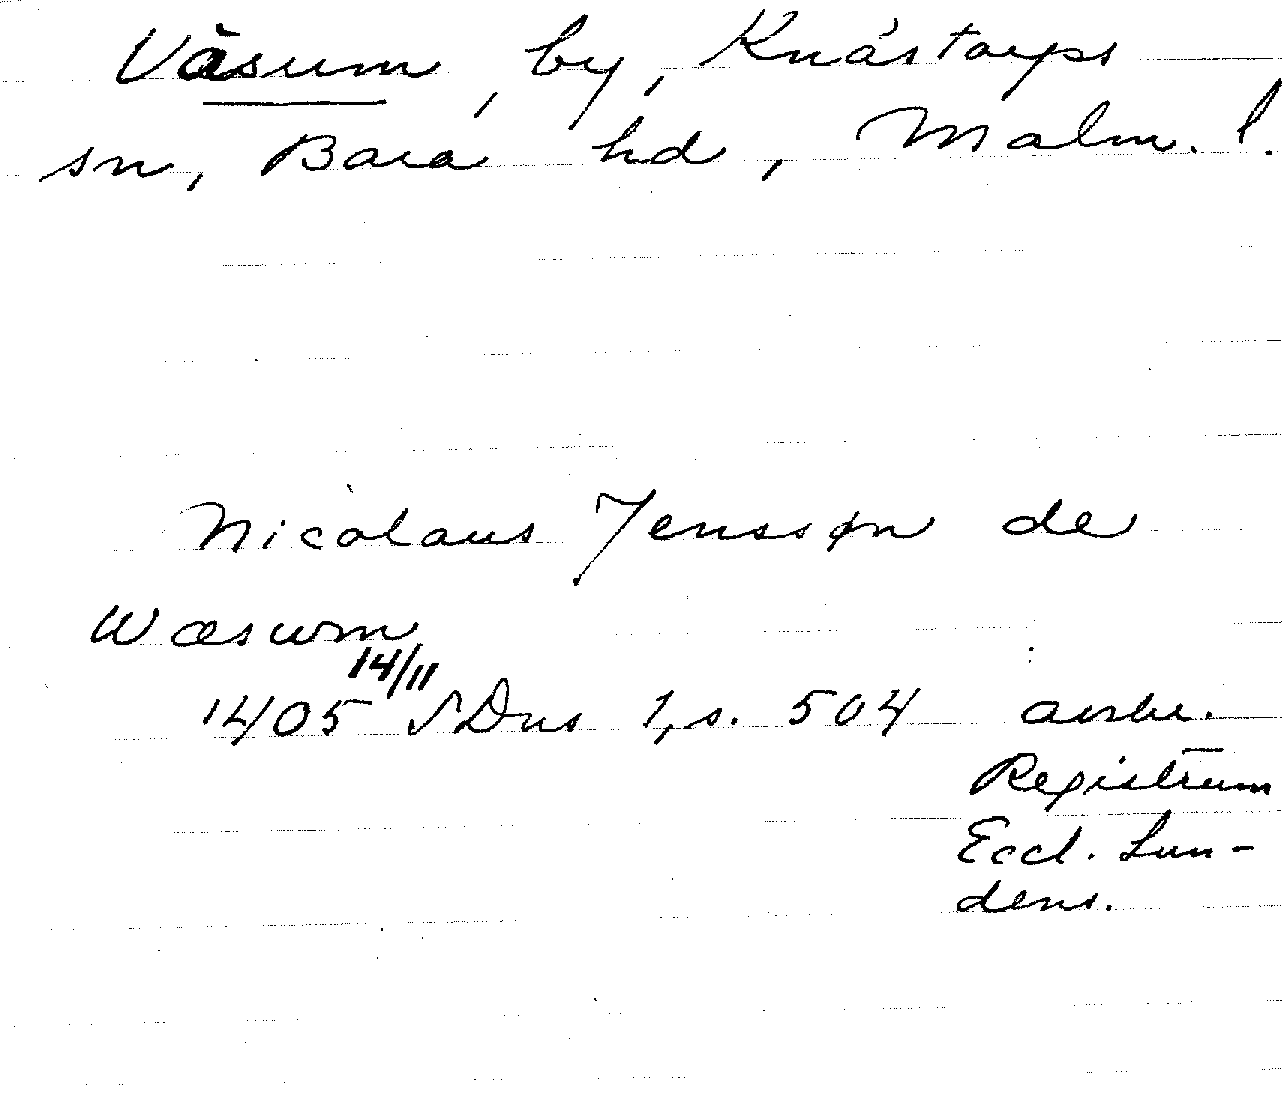 Väsum, by, Knästorps
sn, Bara hd, Malm. l.
Nicolaus Jenssøn de
Wæsum
14/11
1405 SDns 1, s. 504 avskr.
Registrum
Eccl. Lun-
dens.